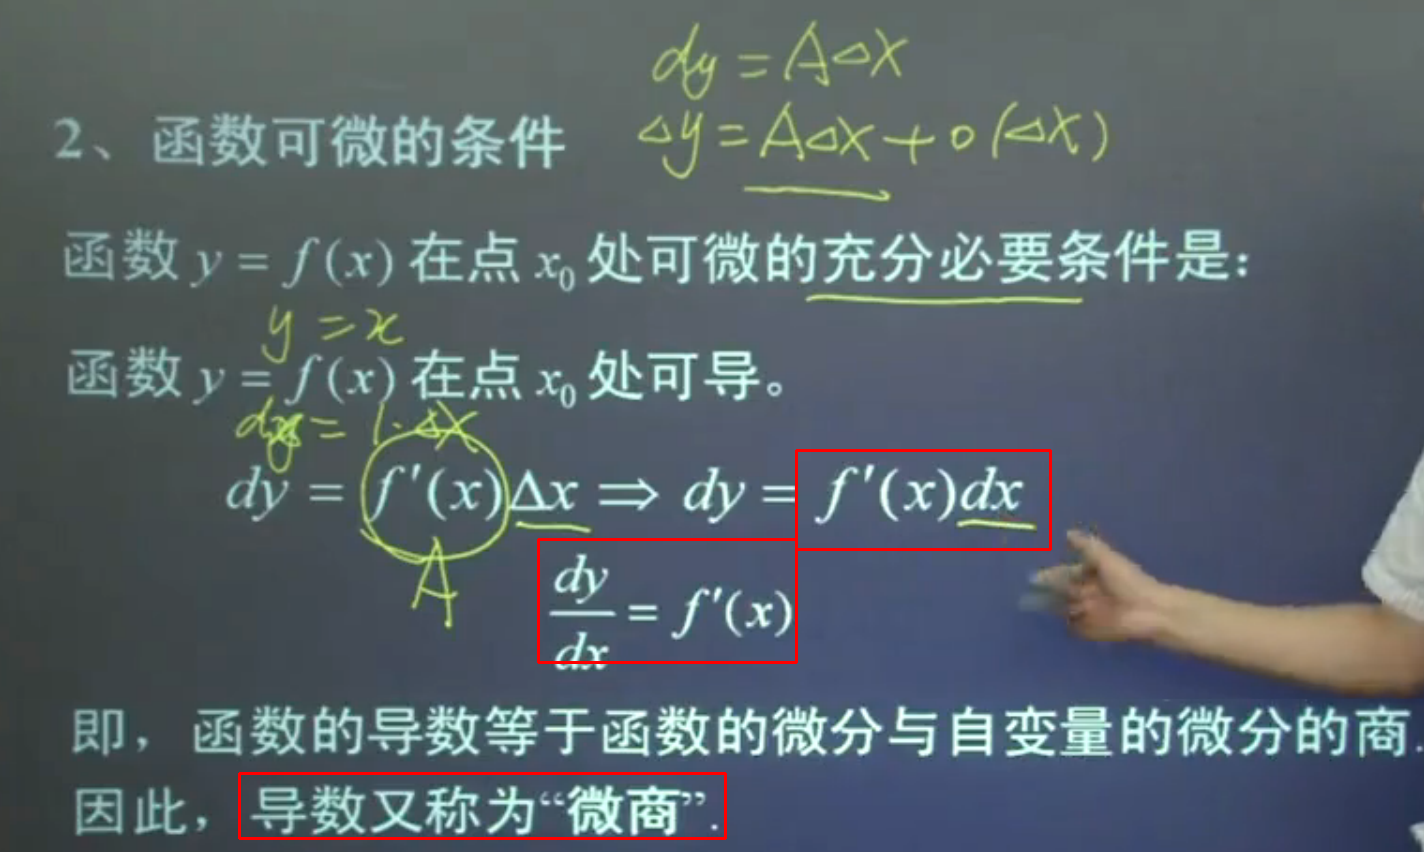 dy = A△x
2、函数可微的条件
△y = A△x + o(△x)
函数 y = f(x) 在点 x₀ 处可微的充分必要条件是：
y = x
函数 y = f(x) 在点 x₀ 处可导。
= 1·△x
dy = f′(x)Δx ⇒ dy = f′(x)dx
A
dy/dx = f′(x)
即，函数的导数等于函数的微分与自变量的微分的商.
因此，导数又称为“微商”.